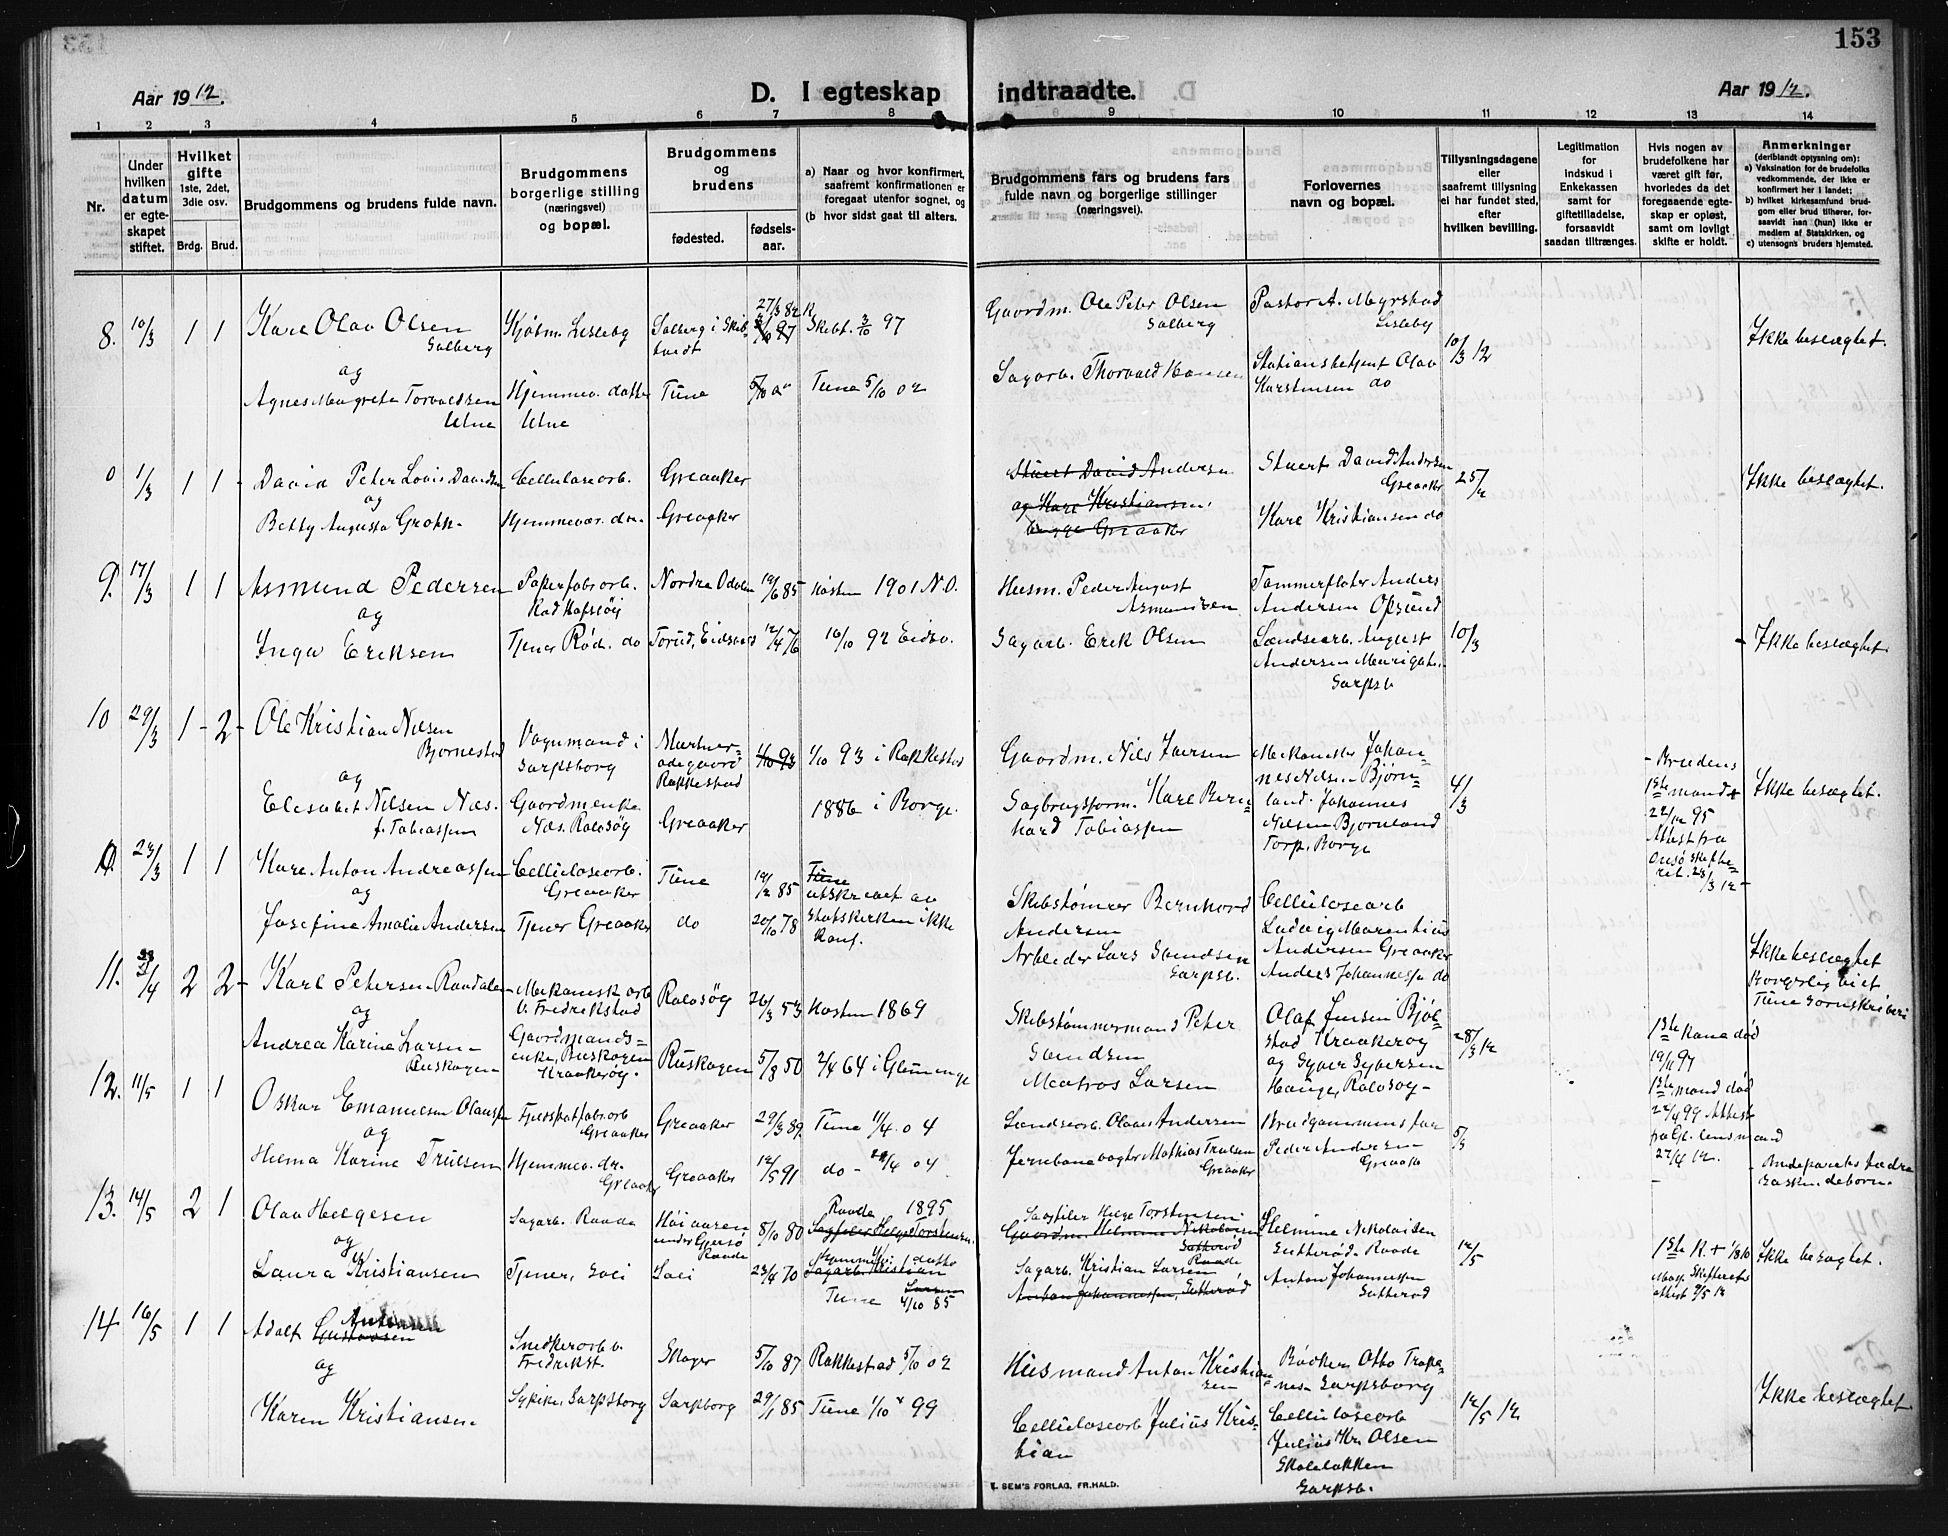 153
Aar 1912.
D. I egteskap indtraadte.
Aar 1912.
1 2 3 4 5 6 7 8 9 10 11 12 13 14
Nr.
Under hvilken datum er egteskapet stiftet.
Hvilket gifte 1ste, 2det, 3die osv.
Brdg. Brud.
Brudgommens og brudens fulde navn.
Brudgommens borgerlige stilling (næringsvei) og bopæl.
Brudgommens og brudens
fødested.
fødselsaar.
a) Naar og hvor konfirmert, saafremt konfirmationen er foregaat utenfor sognet, og
(b hvor sidst gaat til alters.
Brudgommens fars og brudens fars fulde navn og borgerlige stillinger (næringsvei).
Forlovernes navn og bopæl.
Tillysningsdagene eller saafremt tillysning ei har fundet sted, efter hvilken bevilling.
Legitimation for indskud i Enkekassen samt for giftetilladelse, forsaavidt saadan tiltrænges.
Hvis nogen av brudefolkene har været gift før, hvorledes da det foregaaende egteskap er opløst, samt om lovligt skifte er holdt.
Anmerkninger
(deriblandt optysning om):
a) Vaksination for de brudefolks vedkommende, der ikke er konfirmert her i landet;
b) hvilket kirkesamfund brudgom eller brud tilhører, forsaavidt han (hun) ikke er medlem af Statskirken, og
c) utensogns bruders hjemsted.
8. 10/3 1 1 Kare Olav Olsen
Solberg
og
Agnes Margrete Torvaldsen
Ulne
Kjøbm. Lisleby
Hjemmev. datter
Ulne
Solberg i Skibtvedt
Tune
27/3 82
Skibt. 3/10 97
Tune 5/10 02
Gaardm. Ole Peter Olsen
Solberg
Sagarb. Thorvald Hansen
Pastor A. Myrstad
Lisleby
Stationsbetjent Olav
Karstensen do
10/3 12
Ikke beslægtet.
0 1/3 1 1 David Peter Lovis Davidsen
og
Betsy Augusta Groth
Celluloseorb.
Hjemmevær. dr.
Greaaker
Greaaker
Stuert David Andersen
og Kare Kristiansen
begge Greaaker
Stuert David Andersen
Greaaker
Kare Kristiansen do
25/2
Ikke beslægtet.
9. 17/3 1 1 Asmund Pedersen
og
Inga Eriksen
Papirfabr.orb.
Rad Hafslöy
Tjener Röd. do
Nordre Odalen
Torud, Eidsvold
19/6 85
12/4 76
Høsten 1901 N.O.
16/10 92 Eidsv.
Husm. Peder August
Asmundsen
Sagarb. Erik Olsen
Tømmerfløter Anders
Andersen Opsund
Landsearb. August
Andersen
Sarpsb.
10/3
Ikke beslægtet
10 29/3 1 - 2 - Ole Kristian Nilsen
Bjornestad
og
Elisabet Nilsen Næs.
f. Tobiassen
Vognmand i
Sarpsborg
Gaardmenke
Næs. Rolvsöy
Rakkestad
Greaaker
1/10 93
1/10 93 i Rakkestad
1886 i Borge.
Gaardm. Nils Iversen
Sagbrugsform. Kare Bernhard Tobiassen
Mekaniker Johannes Nilsen Bjørnland. Johannes
Nilsen Bjornland
Torp, Borge
4/3
Brudens
1ste mand +
22/12 95
Attest fra
Onsø skifteret. 23/3 12
Ikke beslægtet.
23/3 1 1 Kare Anton Andreassen
og
Josefine Amalie Andersen
Celluloseorb.
Greaaker
Tjener Greaaker
Tune
do
19/2 85
20/10 78
Tune
utskrevet av
Statskirken ikke
konf.
Skibstømrer Bernhard
Andersen
Arbeider Lars Samdsen
Sarpsb.
Cellulosearb
Ludvig Marentius
Andersen Greaaker
Anders Johannessen do
Ikke beslægtet
Borgerlig viet
Tune Sornskriveri
11. 2/4 2 2 - Karl Petersen-Raadalen
og
Andrea Karine Larsen -
Buskogen
Mekanisk arb
v. Fredrikstad
Gaardmandsenke, Buskogen
Kraakeröy.
Rolvsöy
Buskogen
26/3 53
5/8 50
Høsten 1869
2/4 64 i Glemminge
Skibstømmermand Peter
Samdsen
Matros Larsen
Olaf Jensen Bjølstad Kraakeröy
og Syver Syversen
Hauge, Rolvsöy -
28/3 12
1ste kone död
19/11 97
1ste mand död
22/4 99 Attest
fra Gl. lensmand
27/4 12.
12. 11/5 1 1 Oskar Emanuelsen Olaussen
og
Hilma Karine Trulsen
Feldspatfabr.orb
Greaaker
Hjemmev. dr.
Greaaker
Greaaker
Greaaker
29/3 89.
12/5 91
Tune 11/4. 04
do - 24/4 04
Landseorb. Olaus Andersen
Jernbanevogter Mathias Trulsen
Greaaker
Brudgommens far
Peder Andersen
Greaak
5/5
13. 14/5 2 1 Olav Helgesen
og
Laura Kristiansen
Sagarb. Raade
Tjener, Soli
Raade
Soli
8/10 80
23/4 70
Raade 1895
Sagfiler Helge Torstensen.
Sagarb. Kristian
Larsen
Tune 4/10 85
Sagfiler Helge Torstensen
Sagarb. Kristian Larsen
Anton Johannessen, Sutteröd
Helmine Nikolaisen
Sutteröd. Raade
Anton Johannessen
Sutteröd
12/5
1ste K. + 1/8 10
Moss Skifterets
attest 9/5 12
Ikke beslægtet.
14 16/5 1 1 Adolf Gustavsen
Antonsen
og
Karen Kristiansen
Snedkerorb v.
Fredrikst.
Sypike, Sarpsborg
Skoger
Sarpborg
5/10 87
29/1 85
Rakkestad 5/10 02
Tune 1/10 99
Husmand Anton Kristiansen
Celluloseorb Julius Kristian
Bødker Otto
Sarpsborg
Celluloseorb
Julius Kr. Olsen
Skolelökken
Sarpsb.
12/5 12
Ikke beslægtet
E. SEM'S FORLAG, FR.HALD.